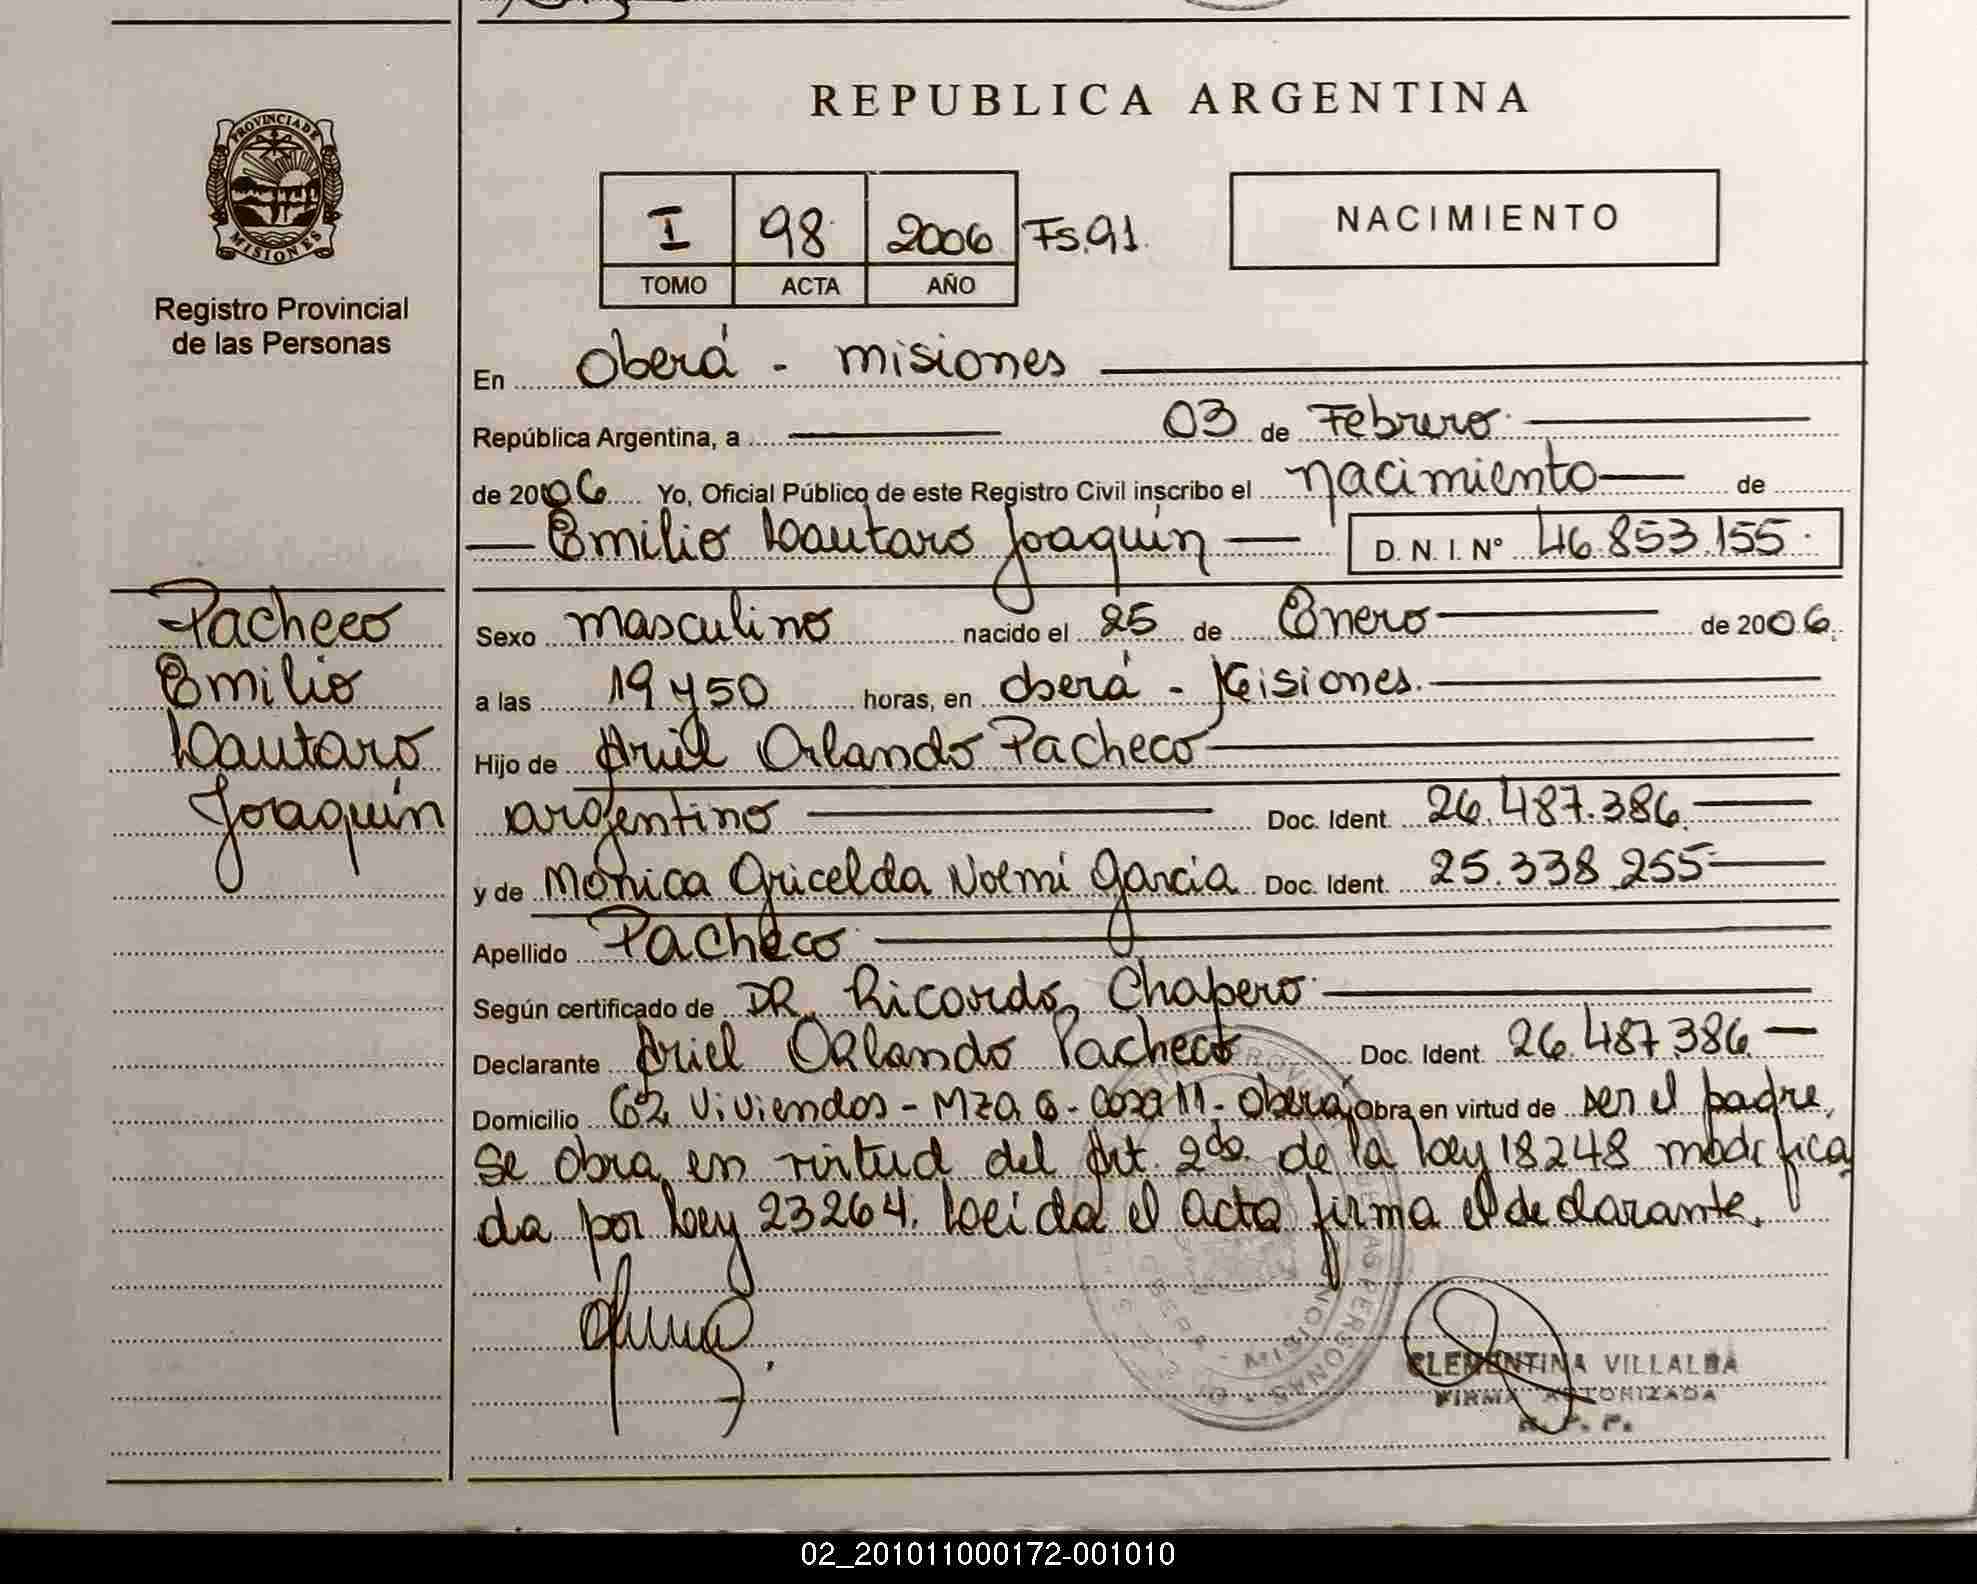 REPUBLICA ARGENTINA
PROVINCIA DE
MISIONES
Registro Provincial
de las Personas
I 98 2006 Fs.91.
TOMO ACTA AÑO
NACIMIENTO
En Oberá - misiones
República Argentina, a 03 de Febrero
de 2006 Yo, Oficial Público de este Registro Civil inscribo el nacimiento de
Emilio Lautaro Joaquín D. N. I. N° 46.853.155
Pacheco
Emilio
Lautaro
Joaquín
Sexo masculino nacido el 25 de Enero de 2006.
a las 19 y 50 horas, en Oberá - Misiones.
Hijo de Ariel Orlando Pacheco
argentino Doc. Ident. 26.487.386.
y de Mónica Gricelda Noemí García Doc. Ident. 25.338.255
Apellido Pacheco
Según certificado de DR. Ricardo Chapero
Declarante Ariel ORlando Pacheco Doc. Ident. 26.487.386.
Domicilio 62 Viviendas - Mza 6 - casa 11 - Oberá, Obra en virtud de ser el padre,
se obra en virtud del Art. 2do. de la Ley 18248 modifica
da por Ley 23264. Leída el Acta firma el declarante.
CLEMENTINA VILLALBA
FIRMA AUTORIZADA
R. P. P.
02_201011000172-001010